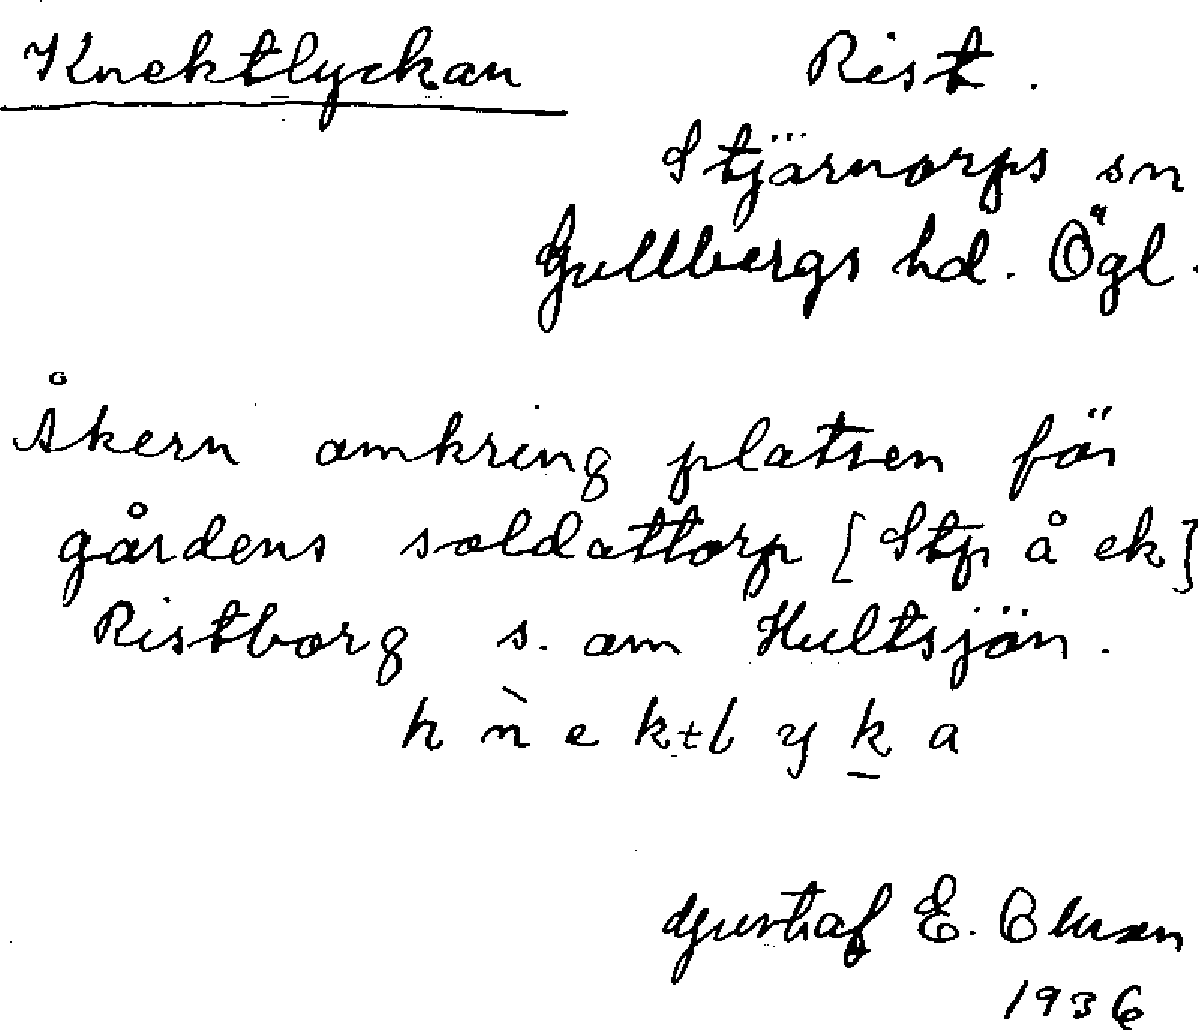 Knektlyckan Rist.
Stjärnorps sn
Gullbergs hd. Ögl.
Åkern omkring platsen för
gårdens soldattorp [Stp å ek]
Ristborg s. om Hultsjön.
k ǹ e k t l y k a
Gustaf E. Olsson
1936